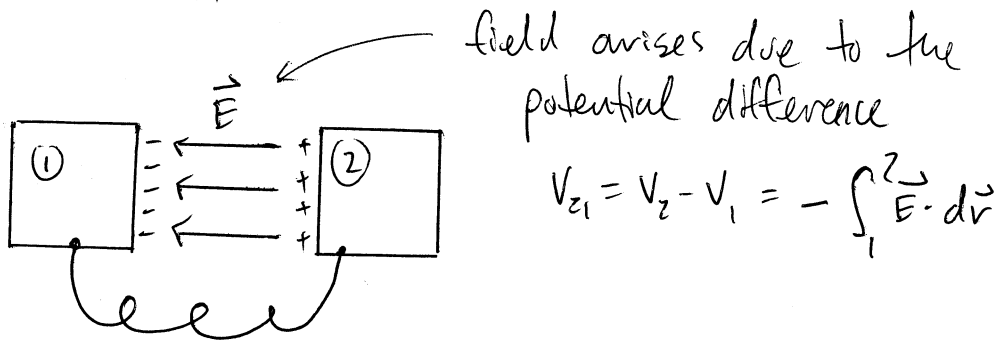 field arises due to the
potential difference
E⃗
① − + ②
− +
− +
− +
−
V₂₁ = V₂ − V₁ = − ∫₁² E⃗ · dr⃗